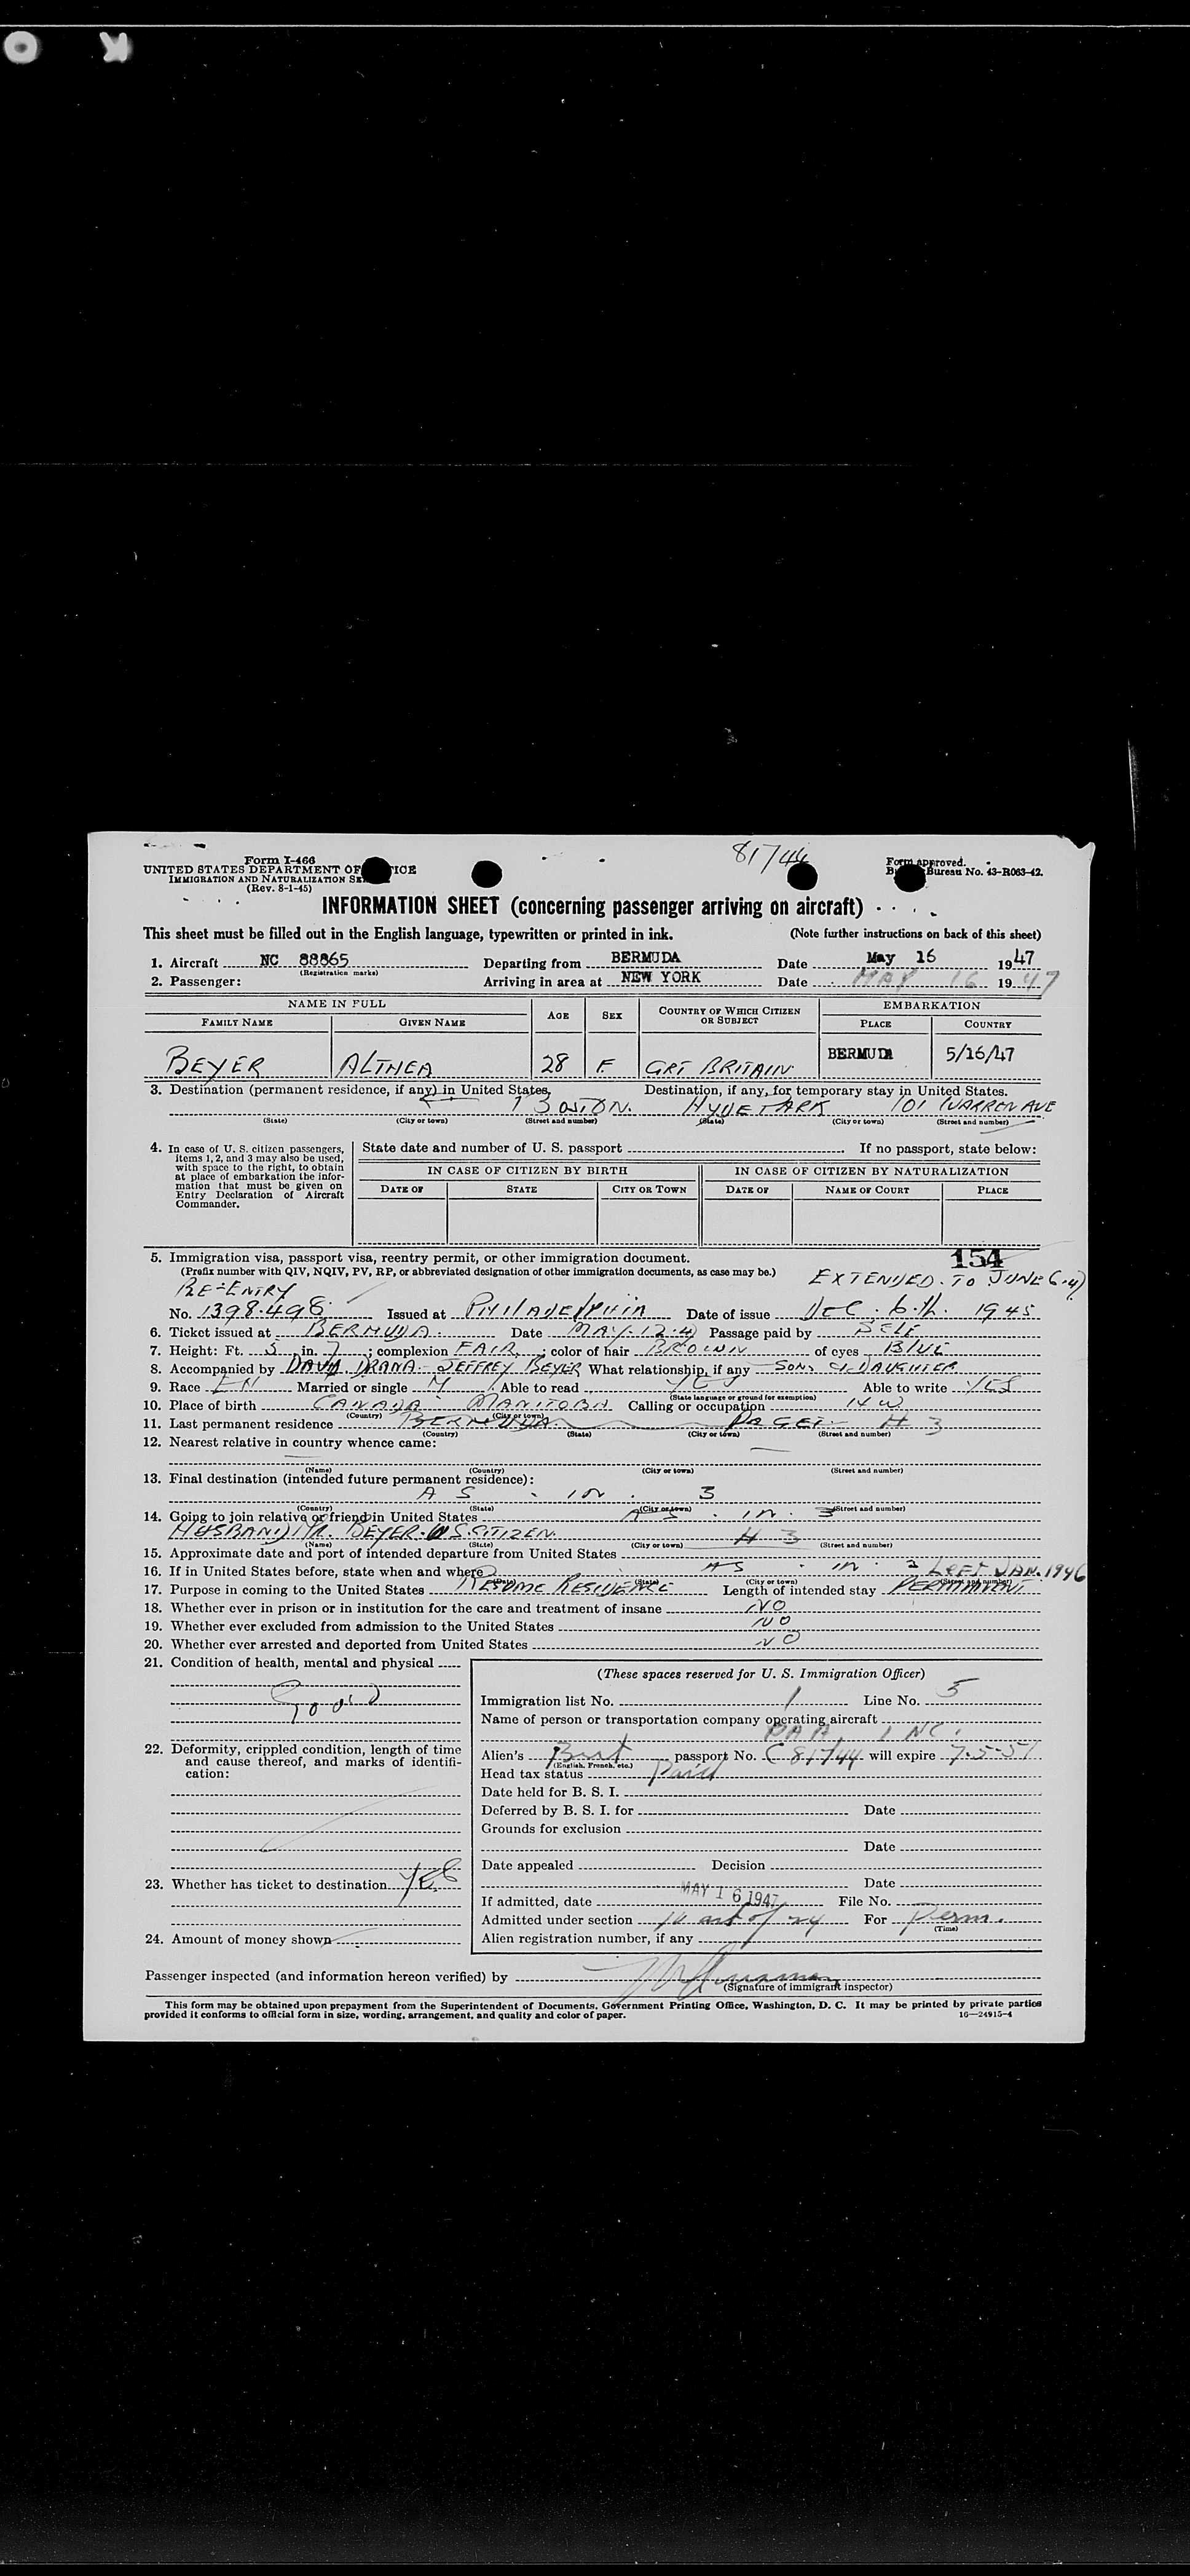 O K
81744
Form I-466
UNITED STATES DEPARTMENT OF
IMMIGRATION AND NATURALIZATION
(Rev. 8-1-45)
Form approved.
Bureau No. 43-R063-42.
INFORMATION SHEET (concerning passenger arriving on aircraft)
This sheet must be filled out in the English language, typewritten or printed in ink. (Note further instructions on back of this sheet)
1. Aircraft NC 88865 Departing from BERMUDA Date May 16 1947
(Registration marks)
2. Passenger: Arriving in area at NEW YORK Date MAY 16 1947
NAME IN FULL AGE SEX COUNTRY OF WHICH CITIZEN OR SUBJECT EMBARKATION
FAMILY NAME GIVEN NAME PLACE COUNTRY
BEYER ALTHEA 28 F GRT BRITAIN BERMUDA 5/16/47
3. Destination (permanent residence, if any) in United States. Destination, if any, for temporary stay in United States.
BOSTON. HYDE PARK 101 WARREN AVE
(State) (City or town) (Street and number) (State) (City or town) (Street and number)
4. In case of U. S. citizen passengers, items 1, 2, and 3 may also be used, with space to the right, to obtain at place of embarkation the information that must be given on Entry Declaration of Aircraft Commander.
State date and number of U. S. passport If no passport, state below:
IN CASE OF CITIZEN BY BIRTH IN CASE OF CITIZEN BY NATURALIZATION
DATE OF STATE CITY OR TOWN DATE OF NAME OF COURT PLACE
5. Immigration visa, passport visa, reentry permit, or other immigration document. 154
(Prefix number with QIV, NQIV, PV, RP, or abbreviated designation of other immigration documents, as case may be.) EXTENDED. TO JUNE 6.47
RE-ENTRY
No. 1398.498 Issued at PHILADELPHIA Date of issue DEC. 6.th. 1945
6. Ticket issued at BERMUDA. Date MAY.12.47 Passage paid by SELF
7. Height: Ft. 5 in. 7 ; complexion FAIR ; color of hair BROWN of eyes BLUE
8. Accompanied by DAVID DIANA JEFFREY BEYER What relationship, if any SONS & DAUGHTER
9. Race EN Married or single M Able to read YES Able to write YES
(State language or ground for exemption)
10. Place of birth CANADA MANITOBA Calling or occupation H W
(Country) (City or town)
11. Last permanent residence BERMUDA PAGET # 3
(Country) (State) (City or town) (Street and number)
12. Nearest relative in country whence came:
(Name) (Country) (City or town) (Street and number)
13. Final destination (intended future permanent residence):
AS IN 3
(Country) (State) (City or town) (Street and number)
14. Going to join relative or friend in United States AS IN 3
HUSBAND MR. BEYER. U S. CITIZEN. # 3
(Name) (State) (City or town) (Street and number)
15. Approximate date and port of intended departure from United States
16. If in United States before, state when and where AS IN 2 LEFT JAN. 1946
(Date) (State) (City or town) (Street and number)
17. Purpose in coming to the United States RESUME RESIDENCE Length of intended stay PERMANENT
18. Whether ever in prison or in institution for the care and treatment of insane NO
19. Whether ever excluded from admission to the United States NO
20. Whether ever arrested and deported from United States NO
21. Condition of health, mental and physical
Good
22. Deformity, crippled condition, length of time and cause thereof, and marks of identification:
23. Whether has ticket to destination YES
24. Amount of money shown
(These spaces reserved for U. S. Immigration Officer)
Immigration list No. 1 Line No. 5
Name of person or transportation company operating aircraft
PAA INC.
Alien's Brit passport No. C 81744 will expire 7-5-51
(English, French, etc.)
Head tax status Paid
Date held for B. S. I.
Deferred by B. S. I. for Date
Grounds for exclusion
Date
Date appealed Decision
Date
If admitted, date MAY 16 1947 File No.
Admitted under section act of 24 For Perm.
(Time)
Alien registration number, if any
Passenger inspected (and information hereon verified) by
(Signature of immigrant inspector)
This form may be obtained upon prepayment from the Superintendent of Documents, Government Printing Office, Washington, D. C. It may be printed by private parties
provided it conforms to official form in size, wording, arrangement, and quality and color of paper. 16—24915-4